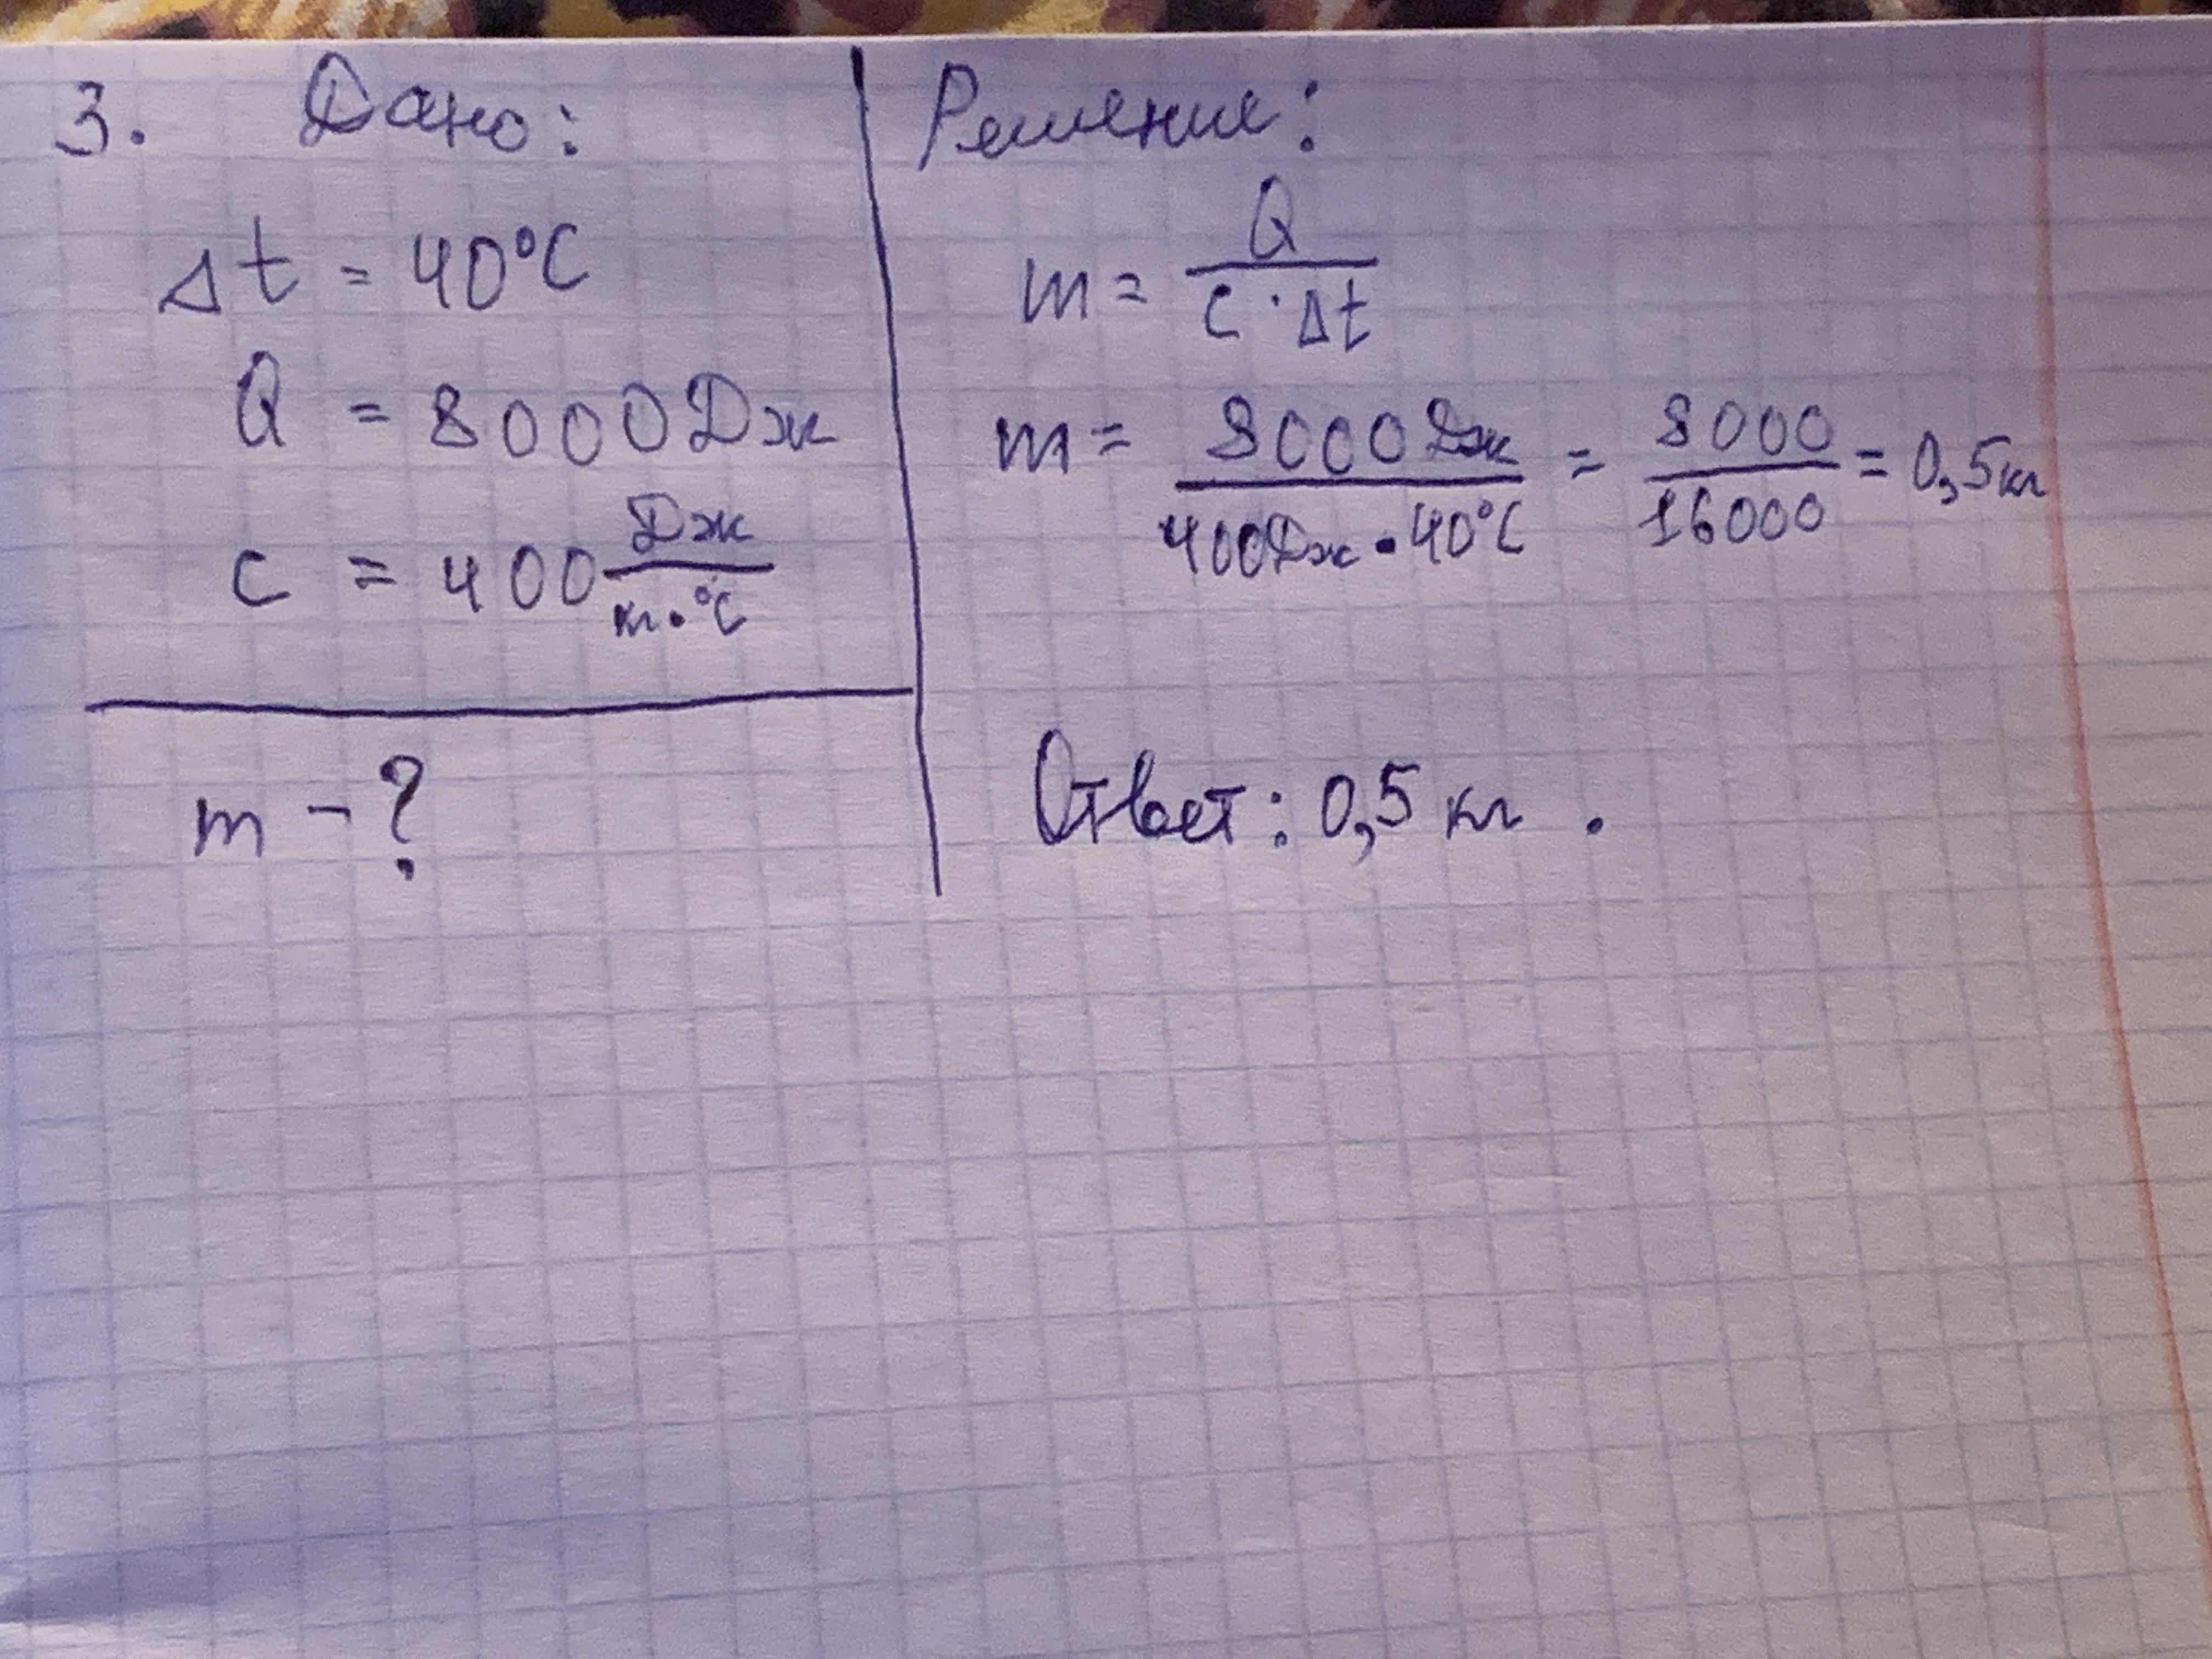 3. Дано:
Δt = 40°C
Q = 8000 Дж
c = 400 Дж/кг·°C
m - ?
Решение:
m = Q/(c·Δt)
m = 8000 Дж/(400 Дж·40°C) = 8000/16000 = 0,5 кг
Ответ: 0,5 кг.